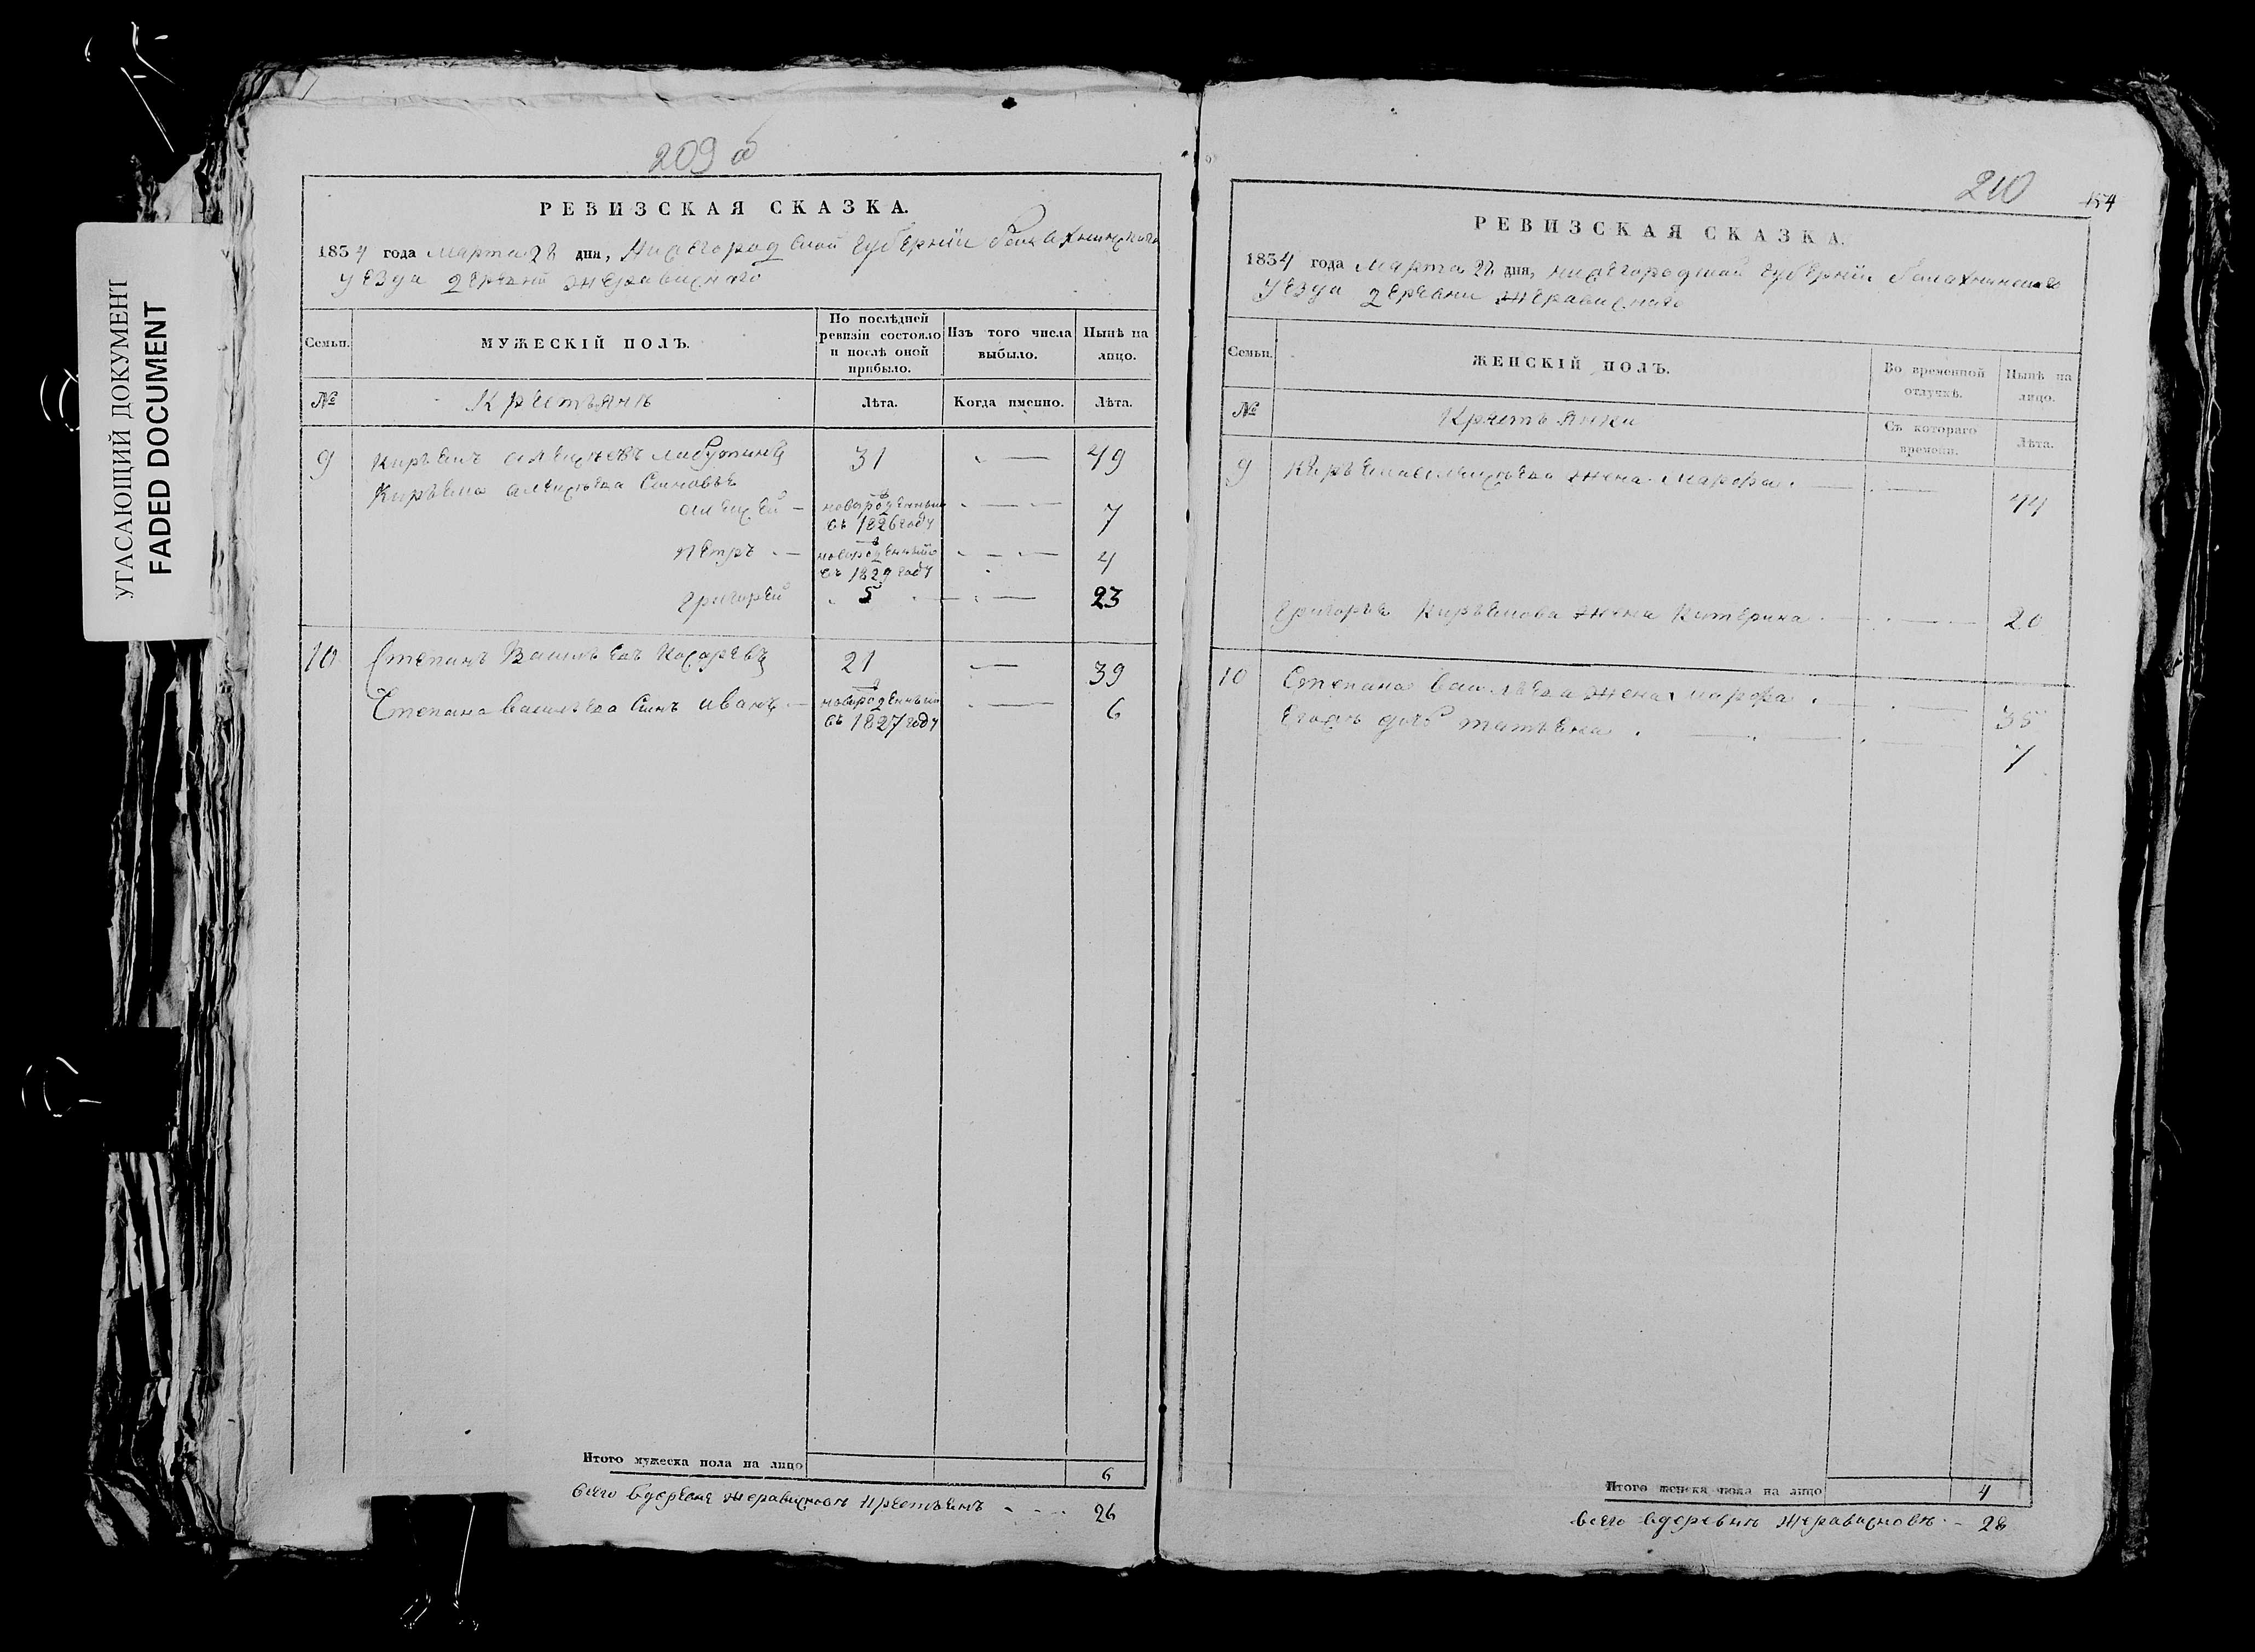 УГАСАЮЩИЙ ДОКУМЕНТ
FADED DOCUMENT
209 об
РЕВИЗСКАЯ СКАЗКА.
1834 года марта дня, Нижегородской губернїи
уезда деревни
Семьи.
МУЖЕСКІЙ ПОЛЪ.
По послѣдней ревизіи состояло и послѣ оной прибыло.
Изъ того числа выбыло.
Нынѣ на лицо.
№
Крестьянъ
Лѣта.
Когда именно.
Лѣта.
9 31 49
алексей новорожденный съ 1826 году 7
петръ новорожденный съ 1829 году 4
григорей 5 23
10 Степанъ Васильевъ 21 39
Степана васильева сынъ иванъ новорожденный съ 1827 году 6
Итого мужеска пола на лицо 6
всего вдеревне 26
210
154
РЕВИЗСКАЯ СКАЗКА.
1834 года марта дня, нижегородской губернїи
уезда деревни
Семьи.
ЖЕНСКІЙ ПОЛЪ.
Во временной отлучкѣ.
Нынѣ на лицо.
№
Крестьянки
Съ котораго времени.
Лѣта.
9 жена марфа 44
жена катерина 20
10 Степана васильева жена марфа 35
дочь татьяна 7
Итого женска пола на лицо 4
всего вдеревнѣ 28